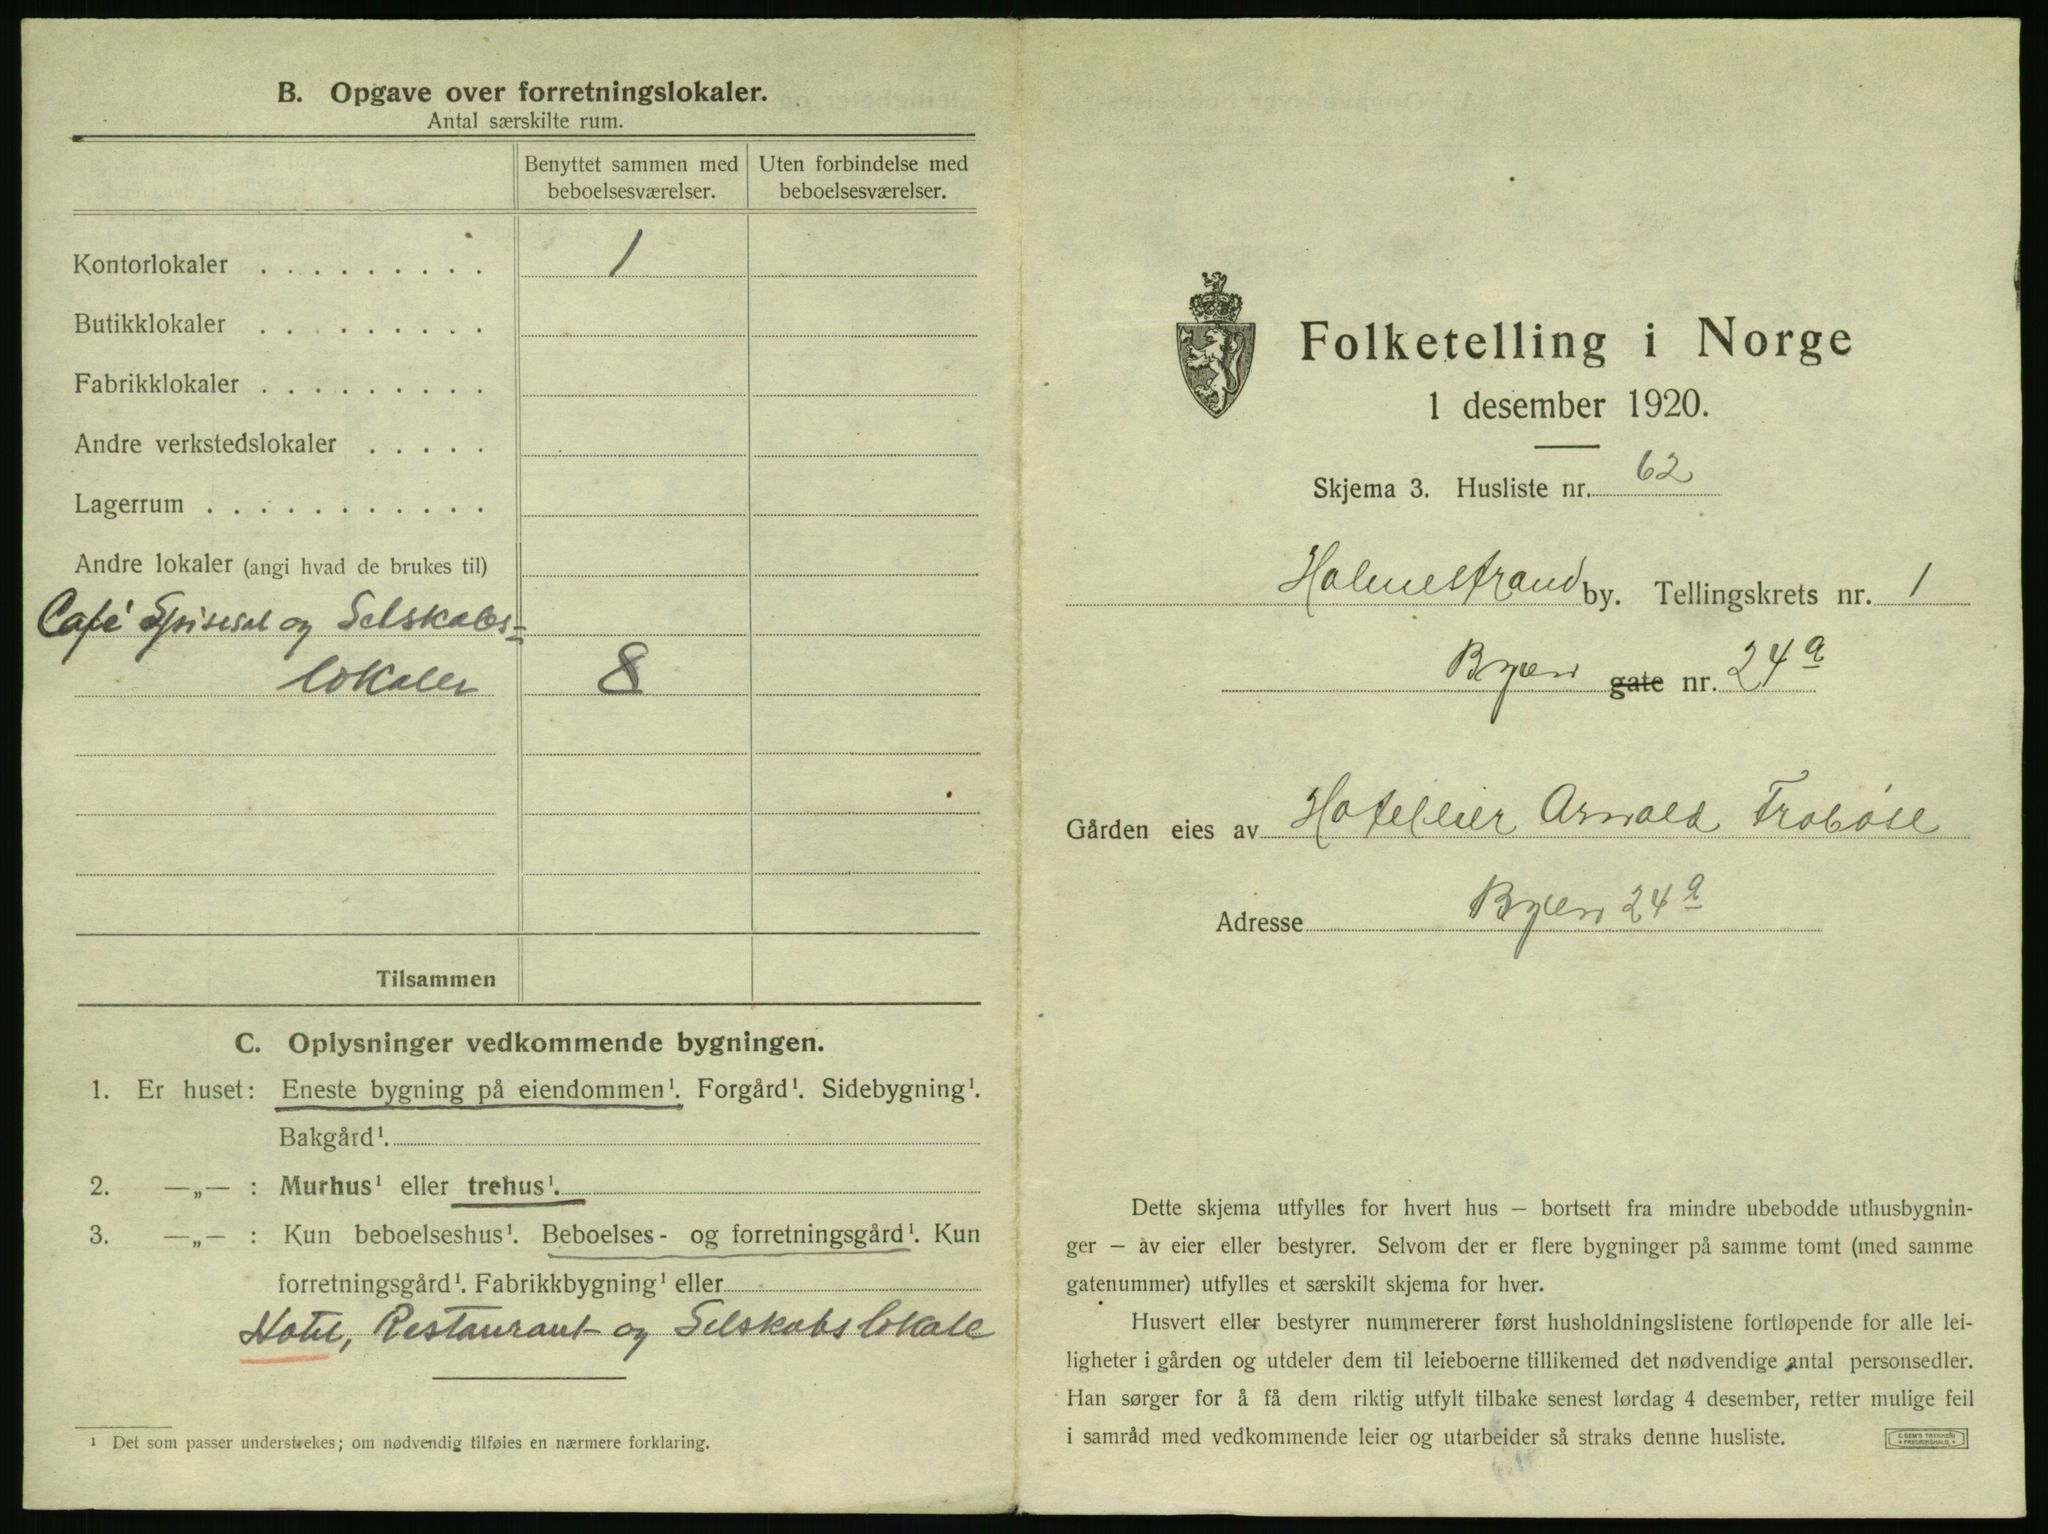 B. Opgave over forretningslokaler.
Antal særskilte rum.
Benyttet sammen med beboelsesværelser.
Uten forbindelse med beboelsesværelser.
Kontorlokaler . . . . . . . . . 1
Butikklokaler . . . . . . . . .
Fabrikklokaler . . . . . . . . .
Andre verkstedslokaler . . . . .
Lagerrum . . . . . . . . . . .
Andre lokaler (angi hvad de brukes til)
Café Spisesal og Selskabs-
lokaler 8
Tilsammen
C. Oplysninger vedkommende bygningen.
1. Er huset: Eneste bygning på eiendommen¹. Forgård¹. Sidebygning¹.
Bakgård¹.
2. —„— : Murhus¹ eller trehus¹.
3. —„— : Kun beboelseshus¹. Beboelses- og forretningsgård¹. Kun
forretningsgård¹. Fabrikkbygning¹ eller
Hotel, Restaurant og Selskabslokale
¹ Det som passer understrekes; om nødvendig tilføies en nærmere forklaring.
Folketelling i Norge
1 desember 1920.
Skjema 3. Husliste nr. 62
Holmestrand by. Tellingskrets nr. 1
Byen gate nr. 24a
Gården eies av Hotelleier Arvald Frobøse
Adresse Byen 24a
Dette skjema utfylles for hvert hus — bortsett fra mindre ubebodde uthusbygnin-
ger — av eier eller bestyrer. Selvom der er flere bygninger på samme tomt (med samme
gatenummer) utfylles et særskilt skjema for hver.
Husvert eller bestyrer nummererer først husholdningslistene fortløpende for alle lei-
ligheter i gården og utdeler dem til leieboerne tillikemed det nødvendige antal personsedler.
Han sørger for å få dem riktig utfylt tilbake senest lørdag 4 desember, retter mulige feil
i samråd med vedkommende leier og utarbeider så straks denne husliste.
E. SEM'S TRYKKERI
FREDRIKSHALD.